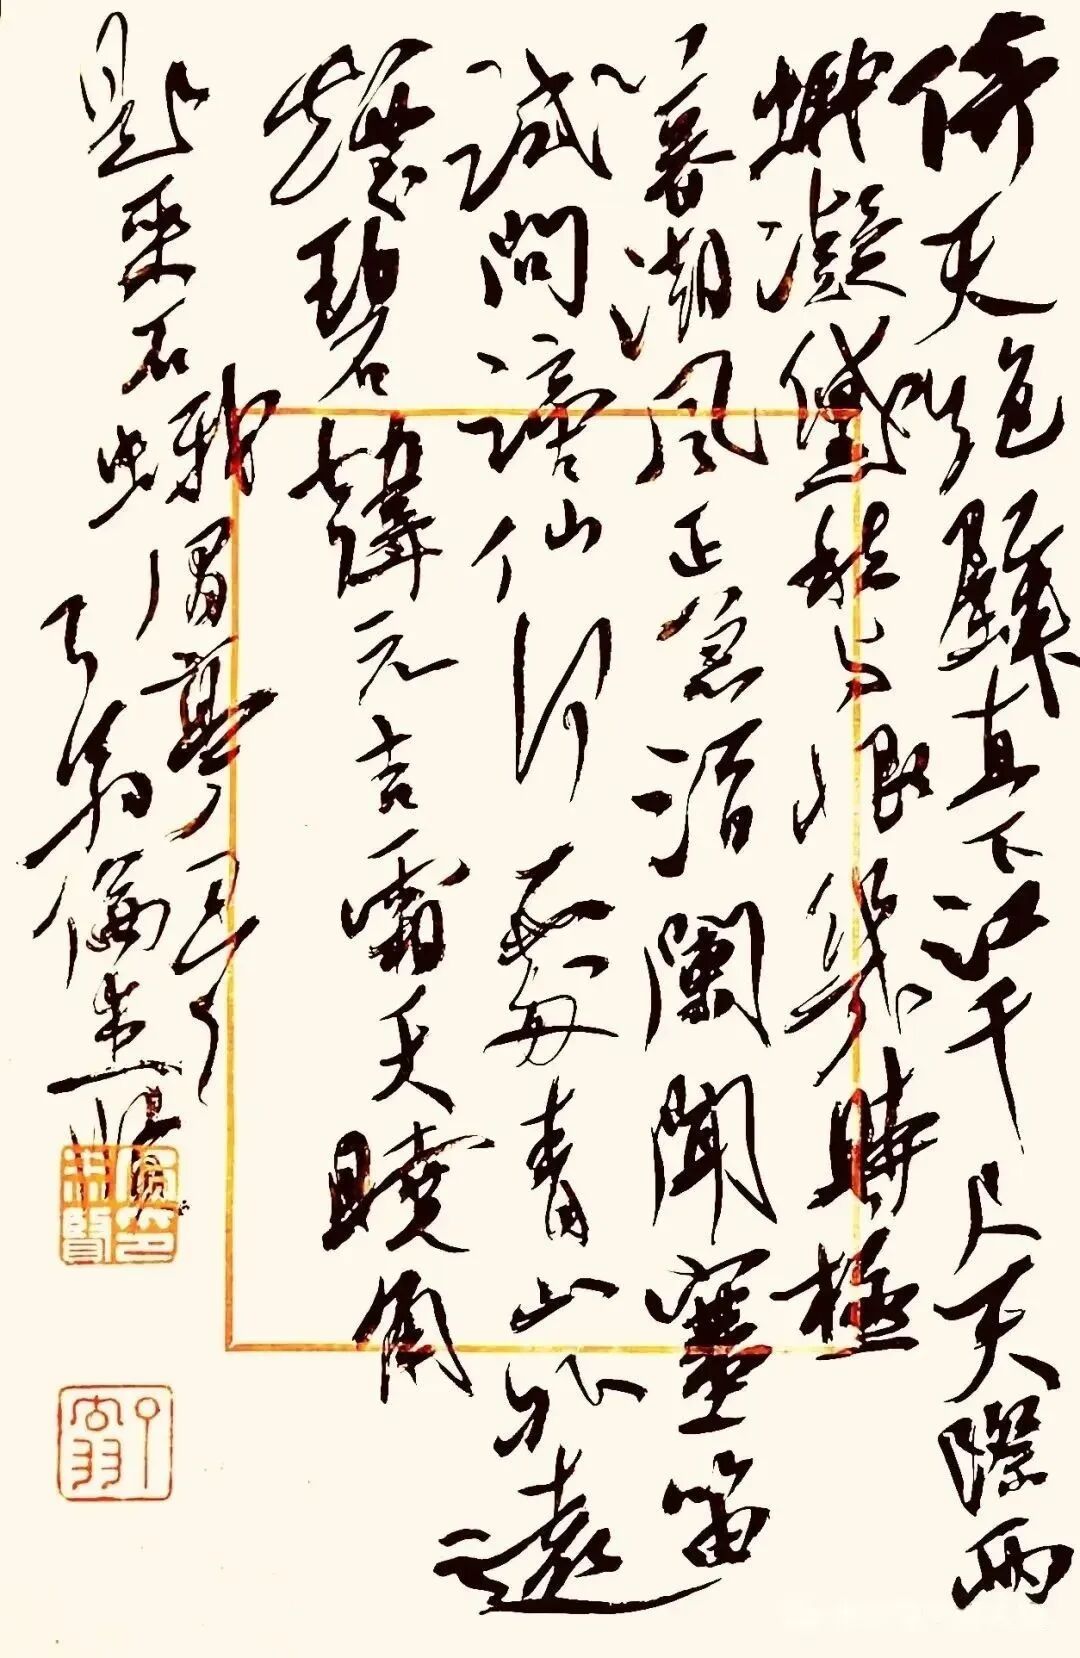 倚天絕壁直下江千尺天際兩
蛾凝黛愁与恨幾時極
暮潮風正急酒闌聞塞笛
試問謫仙何處青山外遠
煙碧韓元吉霜天曉角
題采石蛾眉亭
了翁
了翁